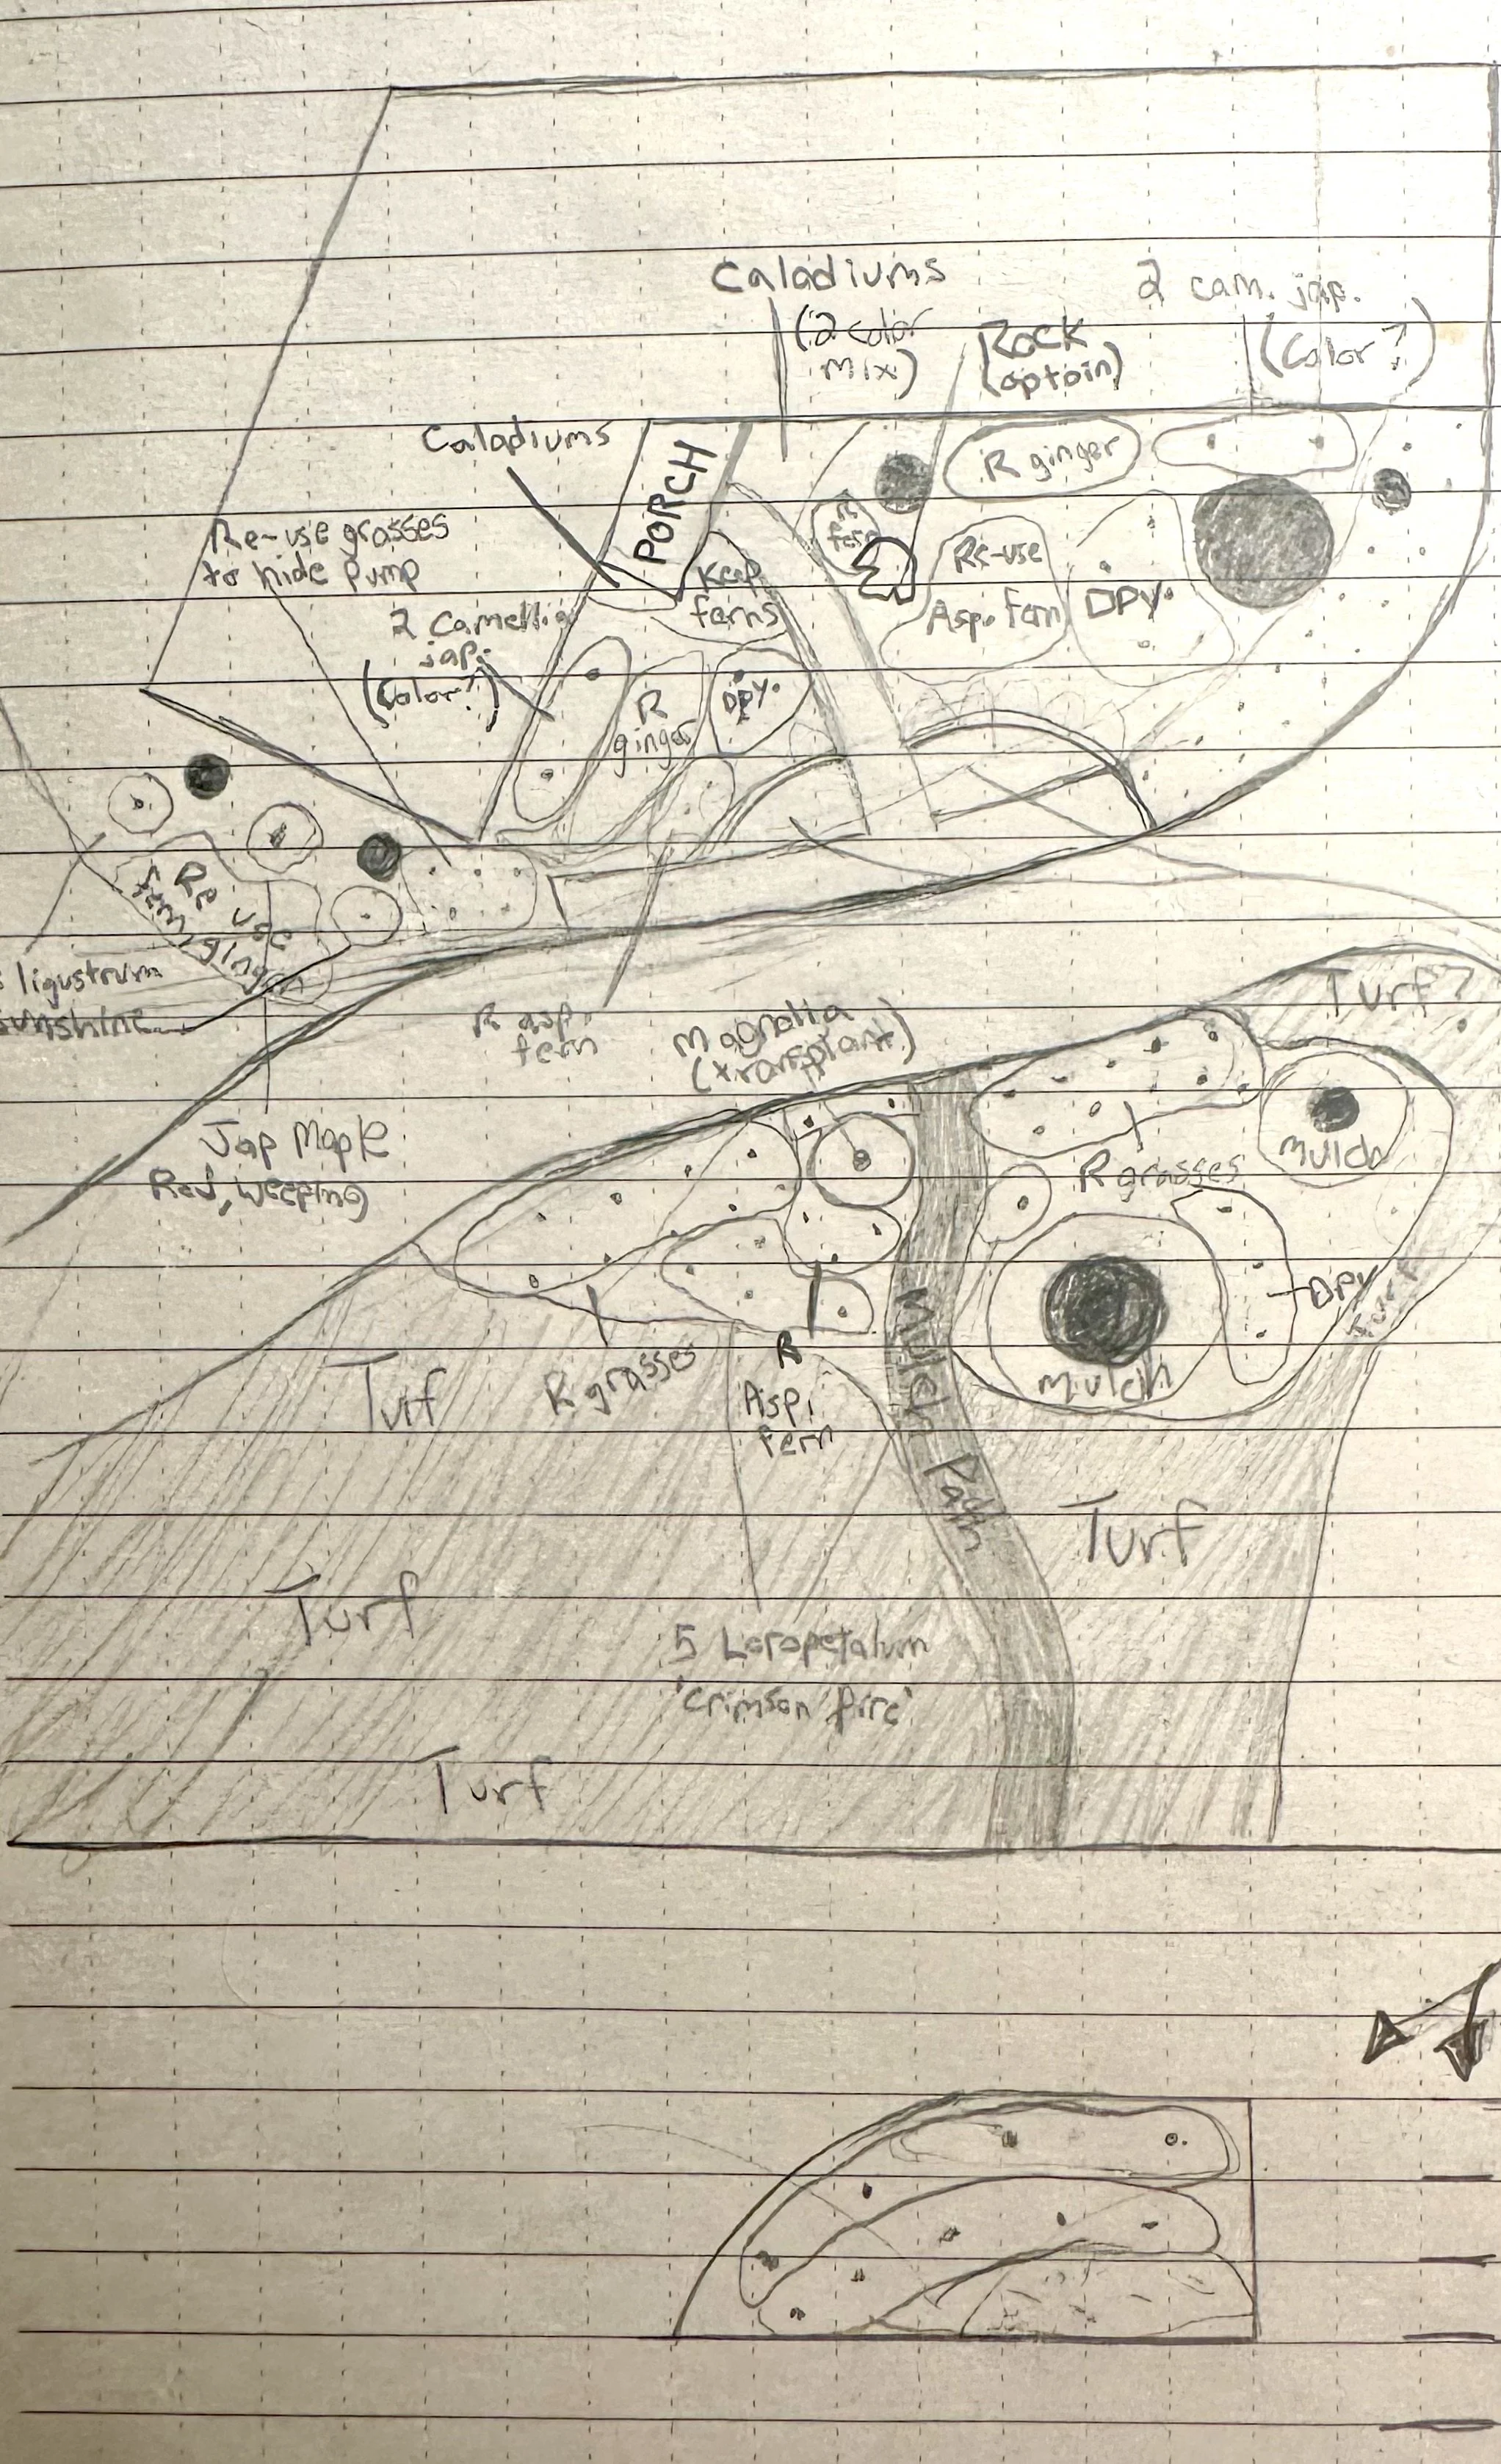 Caladiums
(2 color
mix)
Rock
(optoin)
2 cam. jap.
(Color?)
Caladiums
PORCH
R ginger
Re-use grasses
to hide pump
R
fern
Re-use
Asp. Fern
DPY.
Keep
ferns
2 Camellia
jap.
(Color?)
R
ginger
DPY.
Re use
fern, ginger
ligustrum
sunshine
R asp.
fern
Magnolia
(transplant)
Turf?
Jap Maple
Red, weeping)
R grasses
Mulch
DPY
Mulch
Turf
R grasses
R
Asp.
fern
Mulch Path
Turf
Turf
5 Loropetalum
'Crimson fire'
Turf